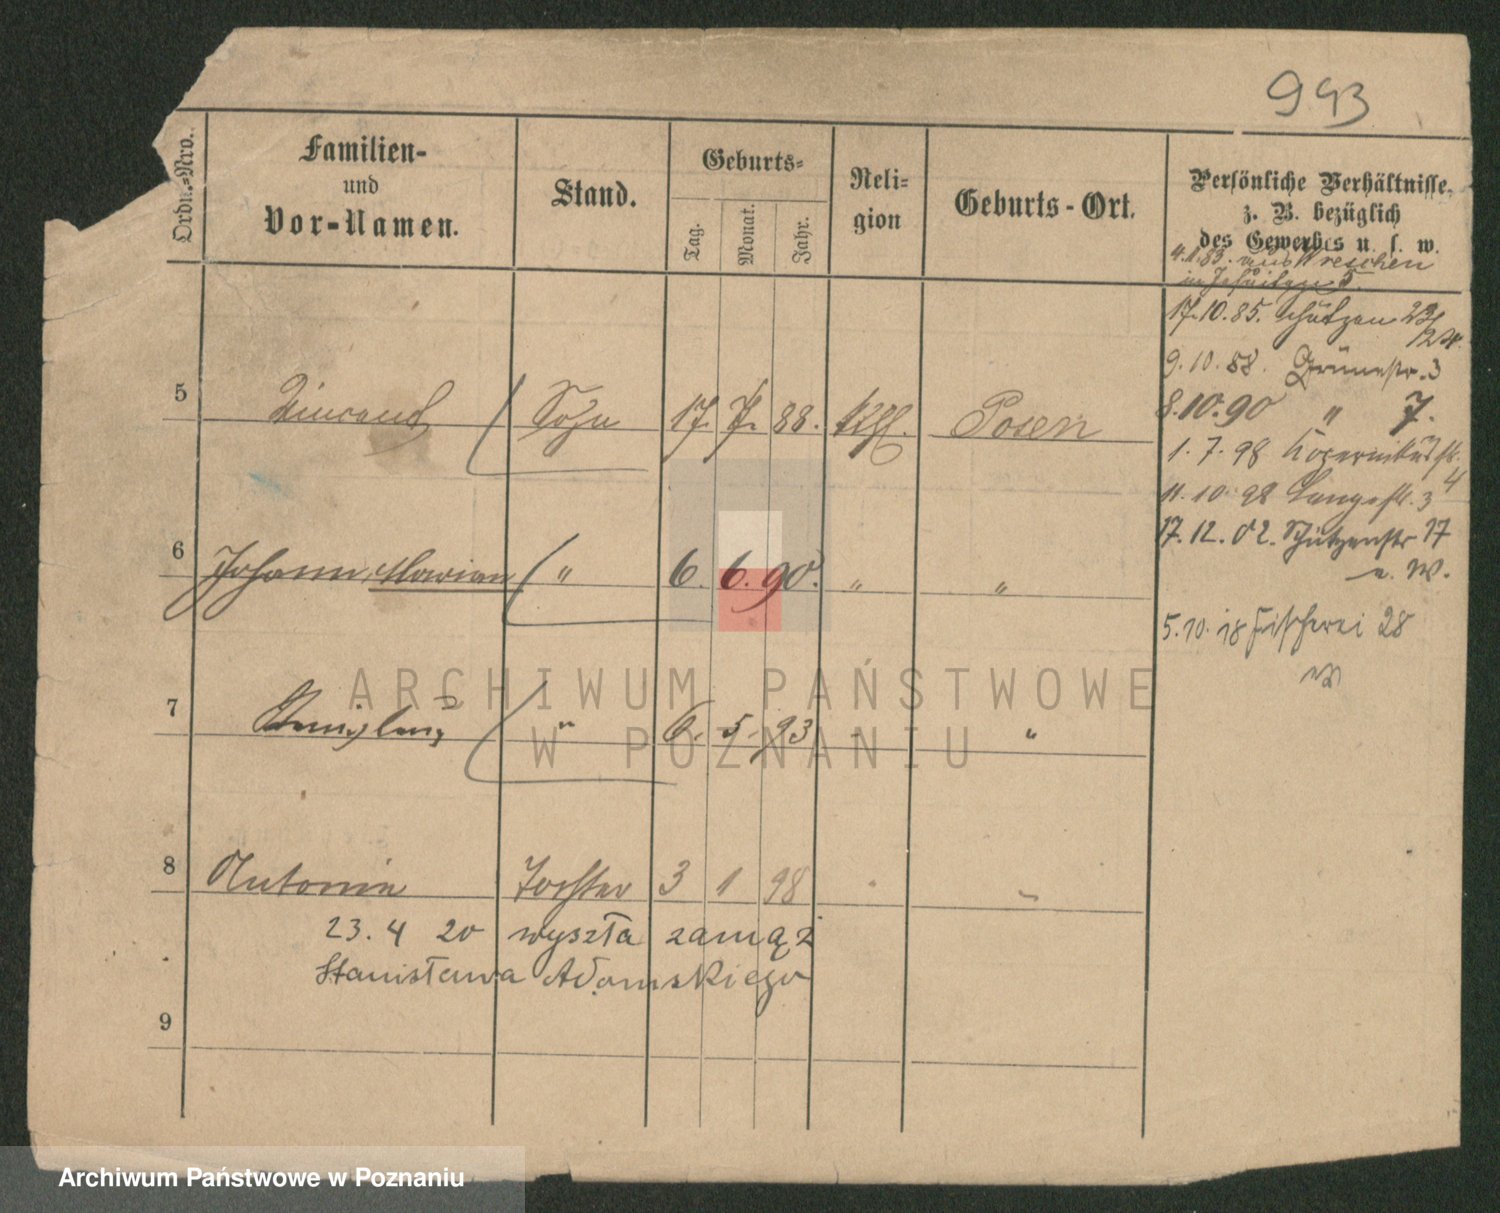 993
Ordn.-Nro.
Familien-
und
Vor-Namen.
Stand.
Geburts-
Tag.
Monat.
Jahr.
Reli-
gion
Geburts-Ort.
Persönliche Verhältnisse,
z. B. bezüglich
des Gewerbes u. s. w.
4.1.83. aus Wreschen
17.10.85. Schützen 23/24.
9.10.88. Grünestr. 3
5 Vincent Sohn 17. 7. 88. Kth. Posen
8.10.90 " 7.
1.7.98
11.10.98 Langestr. 3
6 Johann, Marian " 6. 6. 90. " "
17.12.02. Schützenstr 17
5.10.18 Fischerei 28
7 " 6. 5. 93 "
8 Antonie Tochter 3 1 98
23.4 20 wyszła zamąż
Stanisława Adamskiego
9
ARCHIWUM PAŃSTWOWE
W POZNANIU
Archiwum Państwowe w Poznaniu